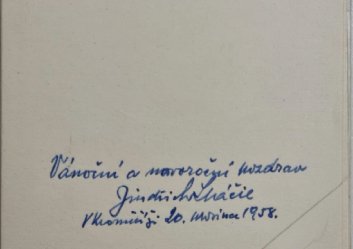 Vánoční a novoroční pozdrav
Jindřich
V Kroměříži 20. prosince 1958.